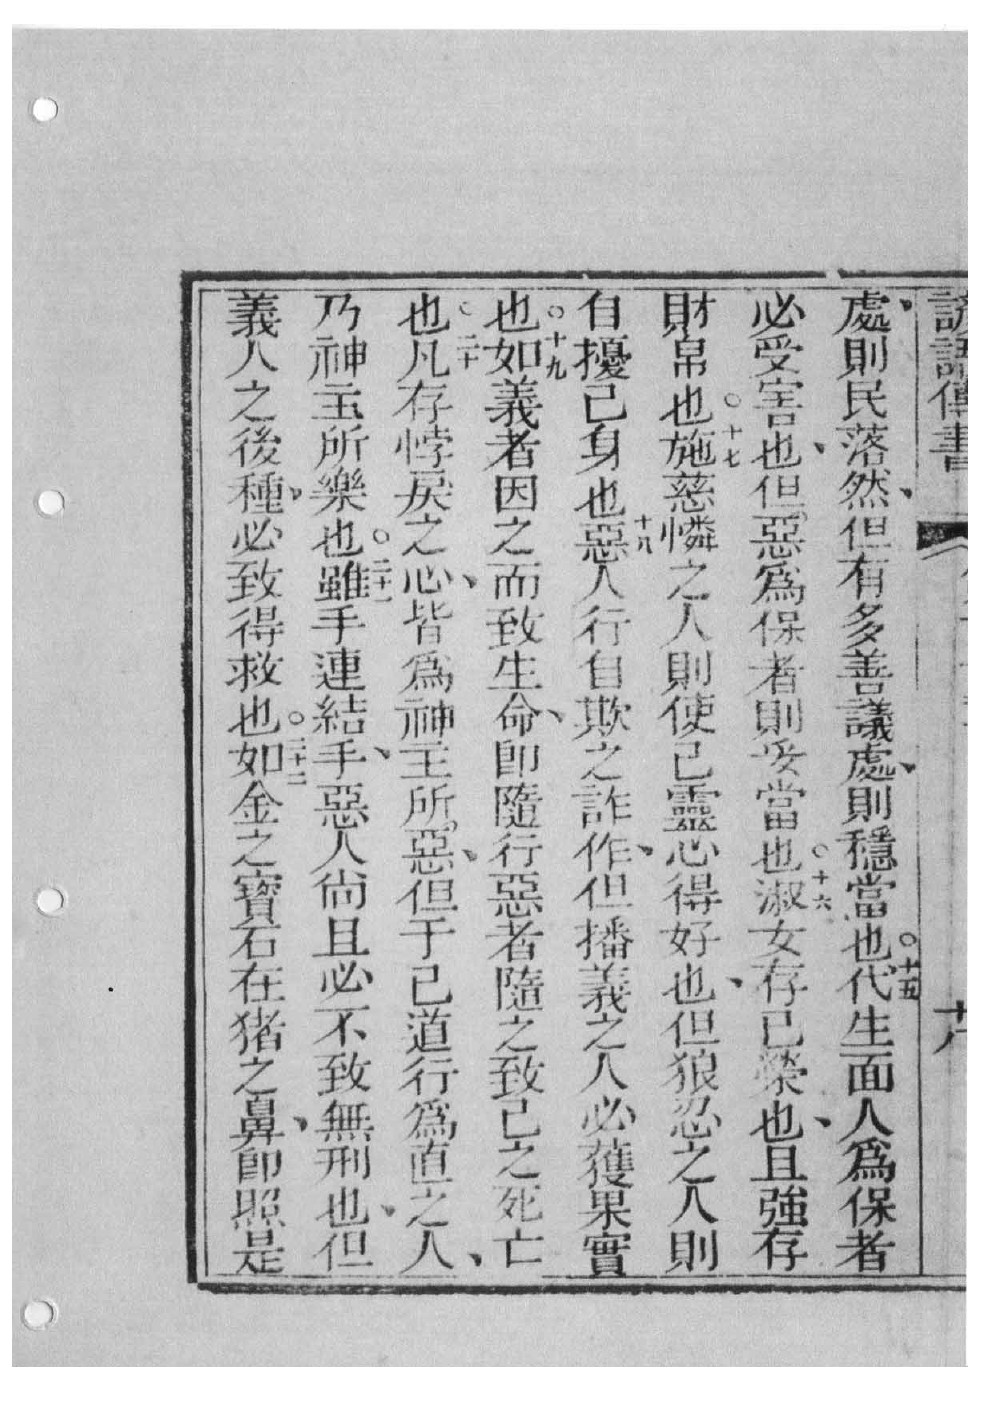 諺語傳書
處、則民落然、但有多善議處、則穩當也○十五代生面人爲保者
必受害也、但惡爲保者則妥當也○十六淑女存已榮也、且強存
財帛也○十七施慈憐之人則使已靈心得好也、但狼忍之人則
自擾己身也十八惡人行自欺之詐作、但播義之人必獲果實
也○十九如義者因之而致生命、卽隨行惡者隨之致己之死亡
也○二十凡存悖戾之心、皆爲神主所惡、但于已道行爲直之人、
乃神主所樂也○二十一雖手連結手、惡人尙且必不致無刑也、但
義人之後種、必致得救也○二十二如金之寶石在猪之鼻、卽照是